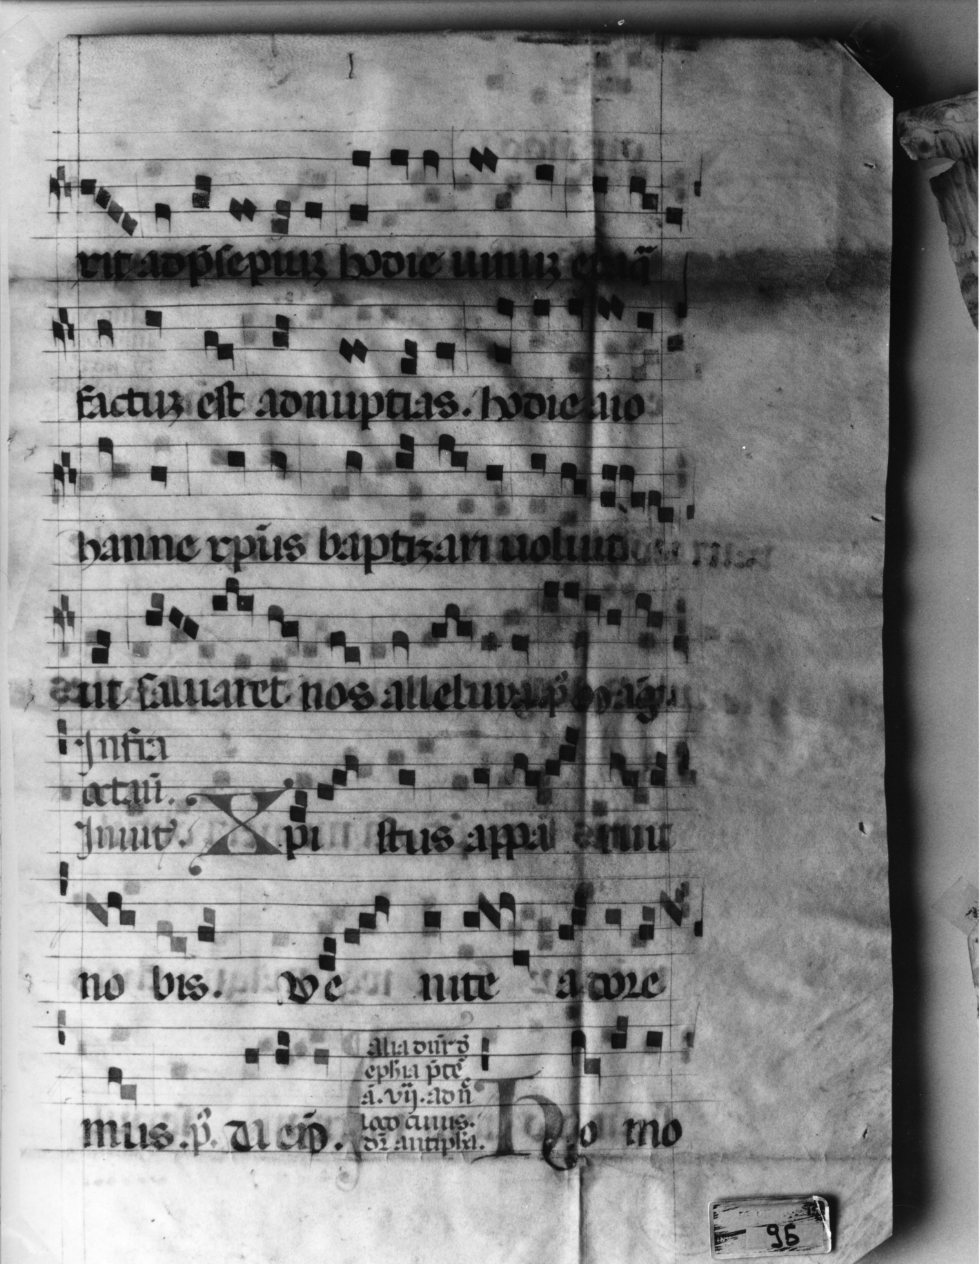 rit ad p̄sepiuꝫ hodie uinuꝫ ex aq̄
factuꝫ est ad nuptias. hodie a io
hanne xp̄us baptizari uoluit
ut saluaret nos alleluya. p̄s magn̄
Infra
octau̅.
Inuit̅. Xpi stus appa ruit
no bis. Ve nite adore
mus. p̄.
alia
eph̅ia
ā. vij. ad
loco cuius.
antiph̅a. H o mo
96